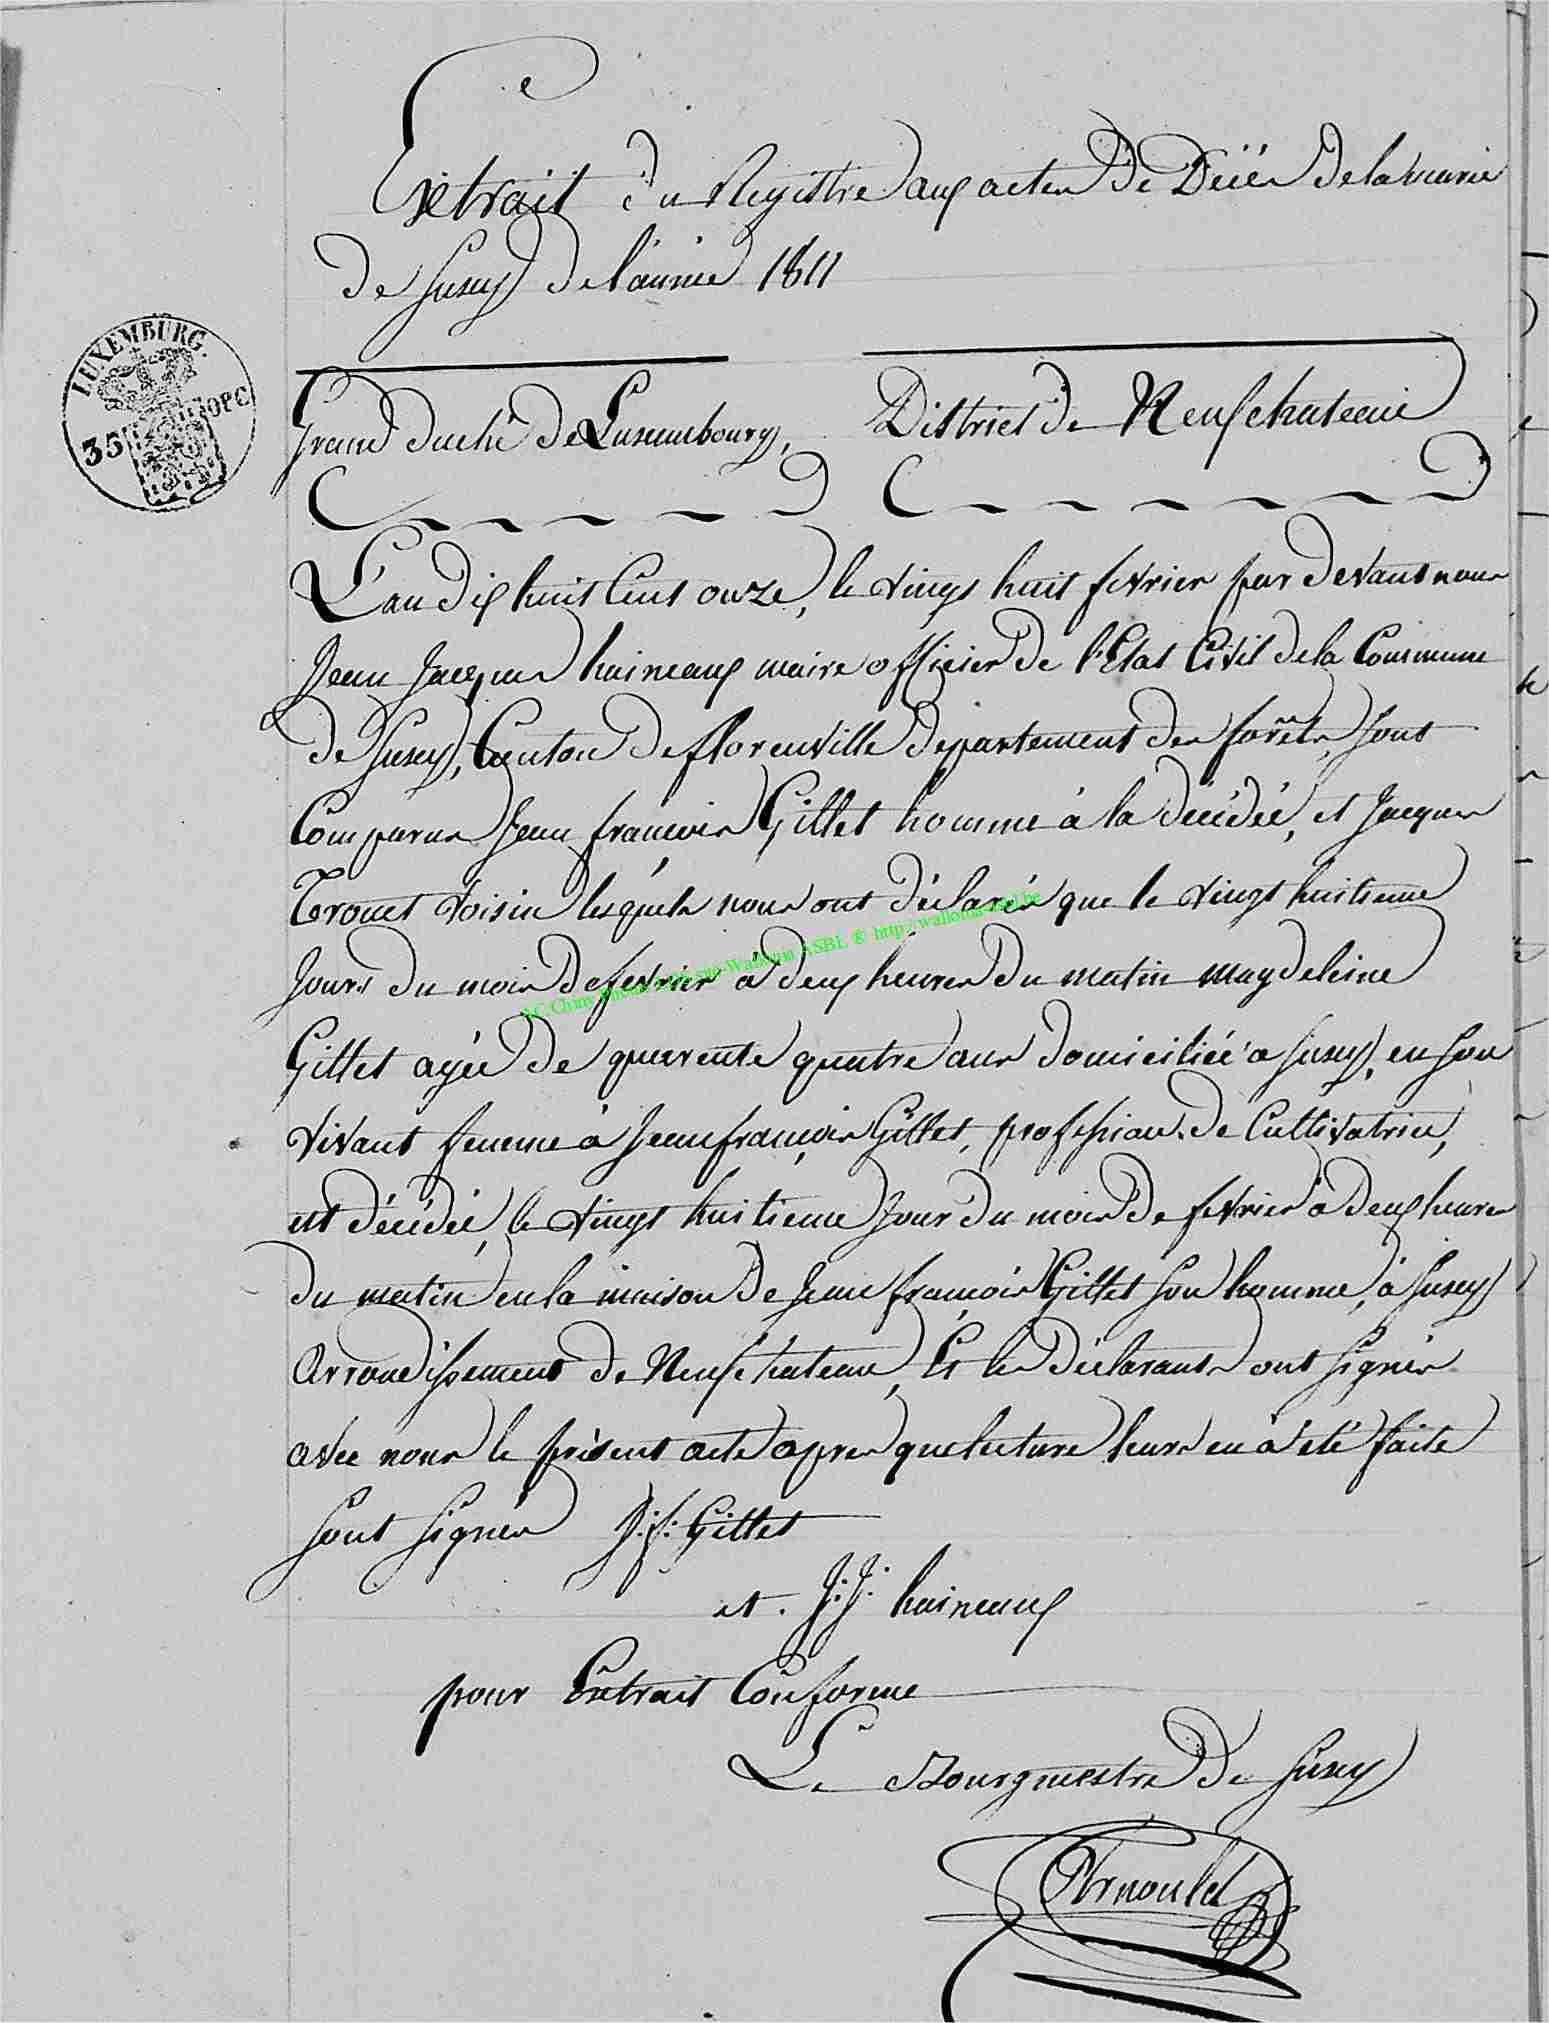 Extrait du Registre aux actes de Décès de la mairie
de Suxy de l'année 1811
LUXEMBURG.
35 OPC
Grand duché de Luxembourg, District de Neufchateau
L'an dix huit Cent onze, le vingt huit fevrier par devant nous
Jean Jacques haineaux maire officier de l'Etat Civil de la Commune
de Suxy, Canton de florenville département des forêts, sont
Comparus Jean françois Gillet homme à la décédée, et Jacques
voisin lesquels nous ont déclarés que le vingt huitieme
Jours du mois de fevrier à deux heures du matin magdeleine
Gillet agée de quarente quatre ans domiciliée a Suxy, en son
vivant femme à Jean françois Gillet, profession de Cultivatrice,
est décédée, le vingt huitieme Jour du mois de fevrier a deux heures
du matin en la maison de Jean françois Gillet son homme, à Suxy
Arrondissement de Neufchateau, Et les déclarants ont signés
avec nous le présent acte apres que lecture leurs en à été faite
Sont signés J: f: Gillet
et J: J: haineaux
pour Extrait Conforme
Le Bourgmestre De Suxy
Arnould